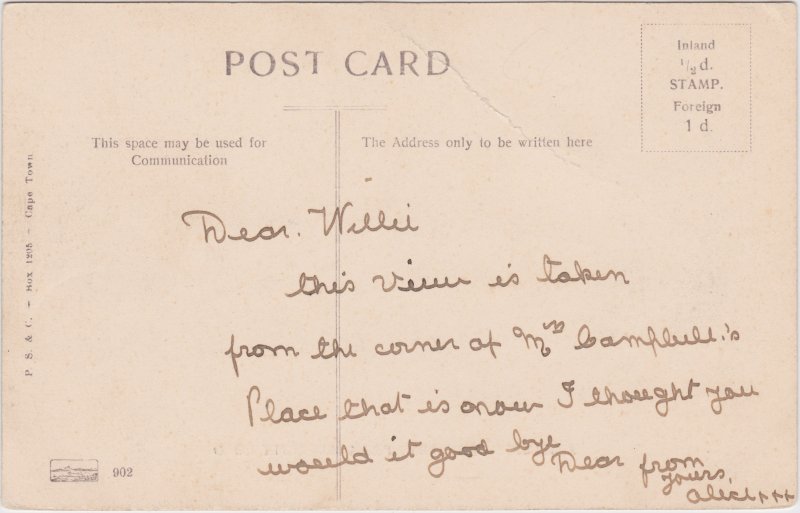 POST CARD
Inland
½ d.
STAMP.
Foreign
1 d.
This space may be used for
Communication
The Address only to be written here
P. S. & C. – Box 1205 – Cape Town
Dear. Willie
this view is taken
from the corner of Mrs Campbell's
Place that is now I thought you
would it good bye
Dear from
yours,
Alice +++
902